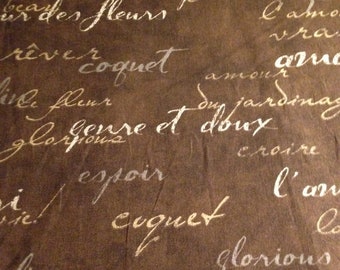 beau l'amo
ur des fleurs vra
rêver coquet amo
amour
le fleur du jardinag
glorious genre et doux
croire
espoir
l'am
vie
coquet
glorious